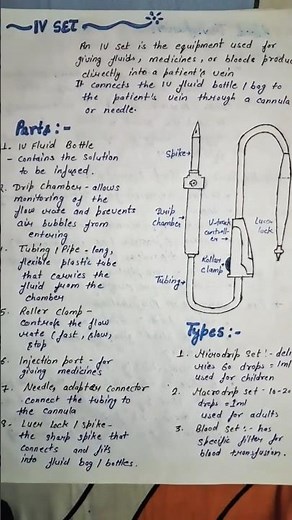 IV SET
An IV set is the equipment used for
giving fluids, medicines, or bloode produ
directly into a patient's vein
It connects the IV fluid bottle / bag to
the patient's vein through a cannula
or needle.
Parts :-
1. IV Fluid Bottle
- Contains the solution
to be infused.
2. Drip chamber - allows
monitoring of the
flow rate and prevents
air bubbles from
entering
4. Tubing / Pipe - long,
flexible plastic tube
that carries the
fluid from the
chamber
5. Roller Clamp -
controls the flow
rate (fast, slow,
stop
6. Injection port - for
giving medicines
7. Needle, adapter connector
connect the tubing to
the cannula
8. Luer lock / spike -
the sharp spike that
connects and fits
into fluid bag / bottles.
Spike
Drip
chamber
Tubing
U-track
controll-
er
Roller
clamp
Luer
lock
Types :-
1. Microdrip set :- deli
veries 60 drops = 1ml
used for children
2. Macrodrip set - 10-20
drops = 1ml
used for adults
3. Blood set :- has
specific filter for
blood transfusion.